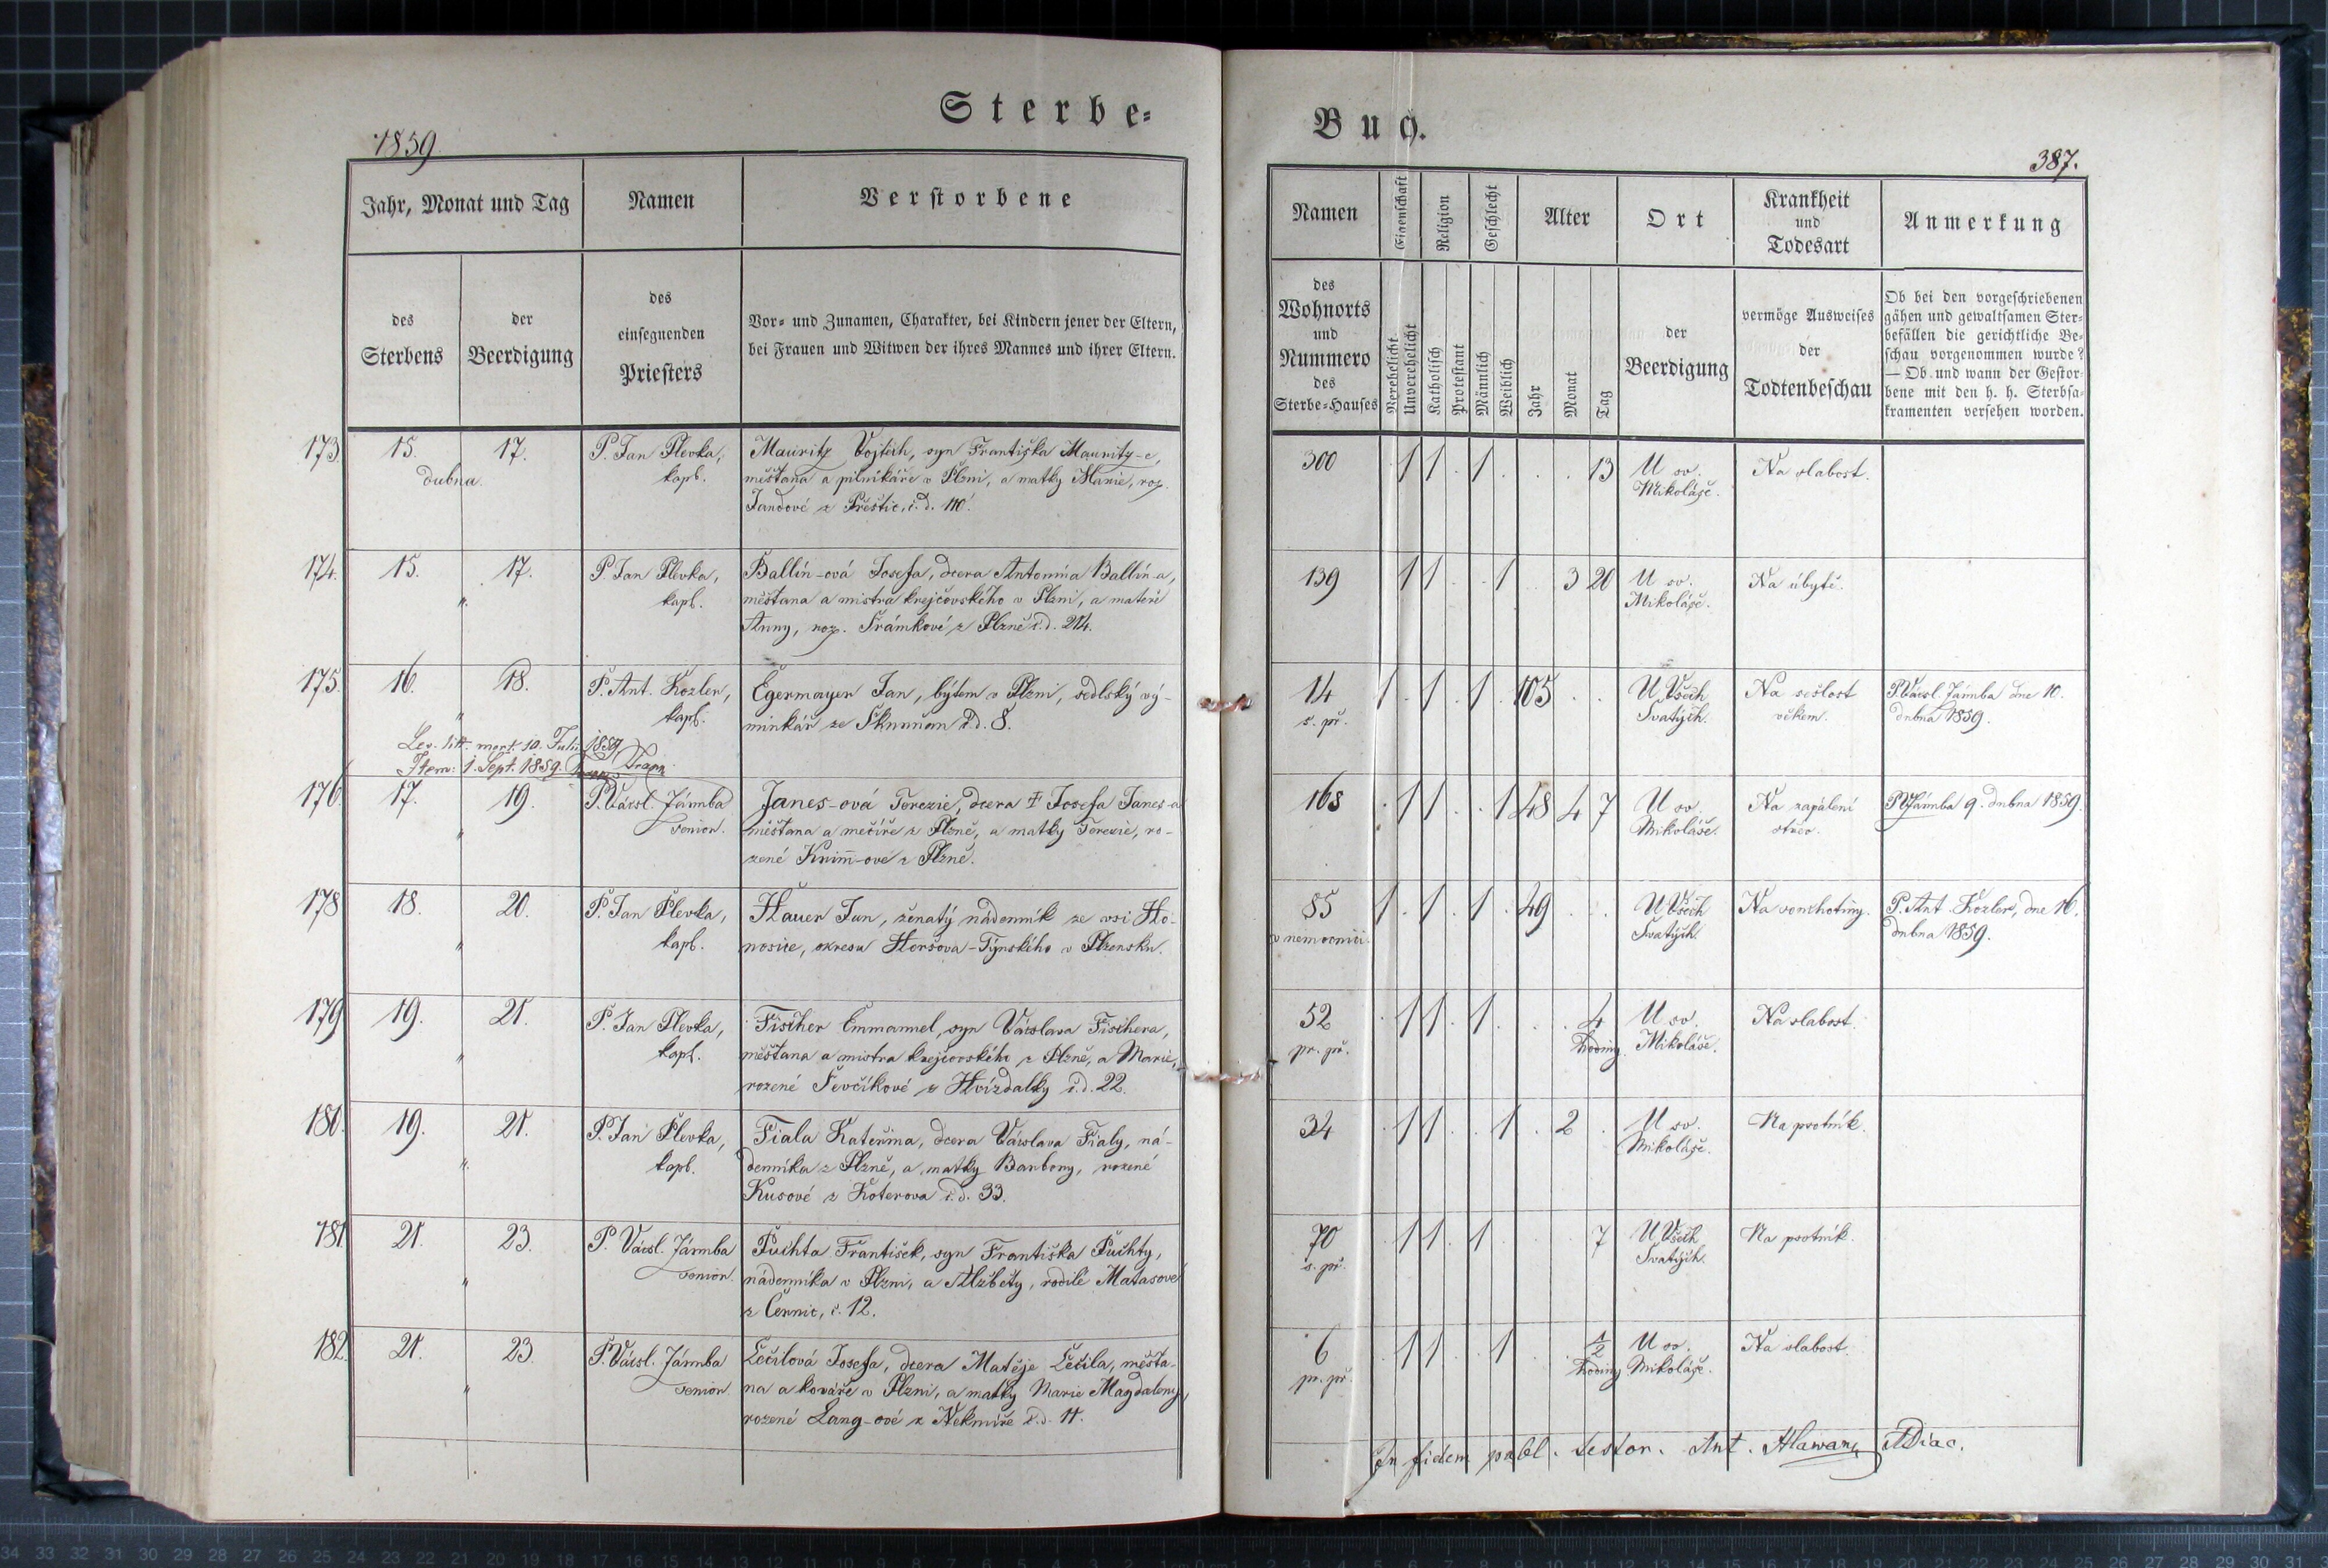 Sterbe-
1859
Jahr, Monat und Tag
Namen
Verstorbene
des
Sterbens
der
Beerdigung
des
einsegnenden
Priesters
Vor- und Zunamen, Charakter, bei Kindern jener der Eltern,
bei Frauen und Witwen der ihres Mannes und ihrer Eltern.
173. 15. 17. P. Jan Plevka, Mauritz Vojtěch, syn Františka Mauritz-e,
dubna. kapl. měšťana a pilnikáře v Plzni, a matky Marie, roz.
Jandové z Přeštic, č.d. 110.
174. 15. 17. P. Jan Plevka, Ballín-ová Josefa, dcera Antonína Ballín-a,
" kapl. měšťana a mistra krejčovského v Plzni, a mateře
Anny, roz. Šrámkové z Plzně č.d. 214.
175. 16. 18. P. Ant. Kozler, Egermayer Jan, bytem v Plzni, sedlský vý-
" kapl. minkář ze Skvrňan č.d. 8.
Lev. litt. mort. 10. Julii 1859
Item: 1. Sept. 1859.
176. 17. 19. P. Václ. Jármba Janes-ová Terezie, dcera † Josefa Janes-a
" senior. měšťana a mečíře z Plzně, a matky Terezie, ro-
zené Knim̄-ové z Plzně.
178 18. 20. P. Jan Plevka, Hauer Jan, ženatý nádenník ze vsi Ho-
" kapl. nosice, okresu Horšova-Týnského v Plzensku.
179 19. 21. P. Jan Plevka, Fischer Emmanuel, syn Václava Fischera,
" kapl. měšťana a mistra krejčovského z Plzně, a Marie,
rozené Ševčíkové z Hvízdalky č.d. 22.
180. 19. 21. P. Jan Plevka, Fiala Kateřina, dcera Václava Fialy, ná-
" kapl. denníka z Plzně, a matky Barbory, rozené
Kusové z Koterova č.d. 33.
181. 21. 23. P. Václ. Jármba Puchta František, syn Františka Puchty,
" senior. nádenníka v Plzni, a Alžběty, rodilé Matasové
z Černic, č. 12.
182. 21. 23. P. Václ. Jármba Lečilová Josefa, dcera Matěje Lečila, měšťa-
" senior. na a kováře v Plzni, a matky Marie Magdaleny,
rozené Lang-ové z Nekmíře č.d. 11.
Buch.
387.
Namen
Eigenschaft
Religion
Geschlecht
Alter
Ort
Krankheit
und
Todesart
Anmerkung
des
Wohnorts
und
Nummero
des
Sterbe-Hauses
Verehelicht
Unverehelicht
Katholisch
Protestant
Männlich
Weiblich
Jahr
Monat
Tag
der
Beerdigung
vermöge Ausweises
der
Todtenbeschau
Ob bei den vorgeschriebenen
gähen und gewaltsamen Ster-
befällen die gerichtliche Be-
schau vorgenommen wurde?
— Ob und wann der Gestor-
bene mit den h. h. Sterbsa-
kramenten versehen worden.
300 . 1 1 . 1 . . . 13 U sv. Na slabost.
Mikoláše.
139 1 1 . . 1 . 3 20 U sv. Na úbytě.
Mikoláše.
14 1 . 1 . 1 . 105 . . U Všech Na sešlost P. Václ. Jármba dne 10.
s. př. Svatých. věkem. dubna 1859.
168 . 1 1 . . 1 48 4 7 U sv. Na zapálení P. V. Jármba 9. dubna 1859.
Mikoláše. střev.
85 1 . 1 . 1 . 49 . . U Všech Na souchotiny. P. Ant. Kozler, dne 16.
v nemocnici. Svatých dubna 1859.
52 . 1 1 . 1 . . . 4 U sv. Na slabost.
pr. př. hodiny. Mikoláše.
34 . 1 1 . . 1 . 2 . U sv. Na psotník.
Mikoláše.
70 . 1 1 . 1 . . . 7 U Všech Na psotník.
s. př. Svatých.
6 . 1 1 . . 1 . . 1/2 U sv. Na slabost.
pr. př. hodiny Mikoláše.
In fidem publ. testor. Ant. Hlawan ADiac.